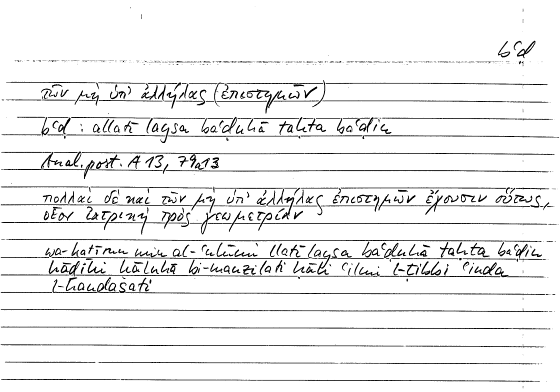 bʿḍ
τῶν μὴ ὑπ' ἀλλήλας (ἐπιστημῶν)
bʿḍ : allatī laysa baʿḍuhā taḥta baʿḍin
Anal. post. A 13, 79a13
πολλαὶ δὲ καὶ τῶν μὴ ὑπ' ἀλλήλας ἐπιστημῶν ἔχουσιν οὕτως,
οἷον ἰατρικὴ πρὸς γεωμετρίαν
wa-kaṯīrun min al-ʿulūmi llatī laysa baʿḍuhā taḥta baʿḍin
hāḏihī ḥāluhā bi-manzilati ḥāli ʿilmi l-ṭibbi ʿinda
l-handasati